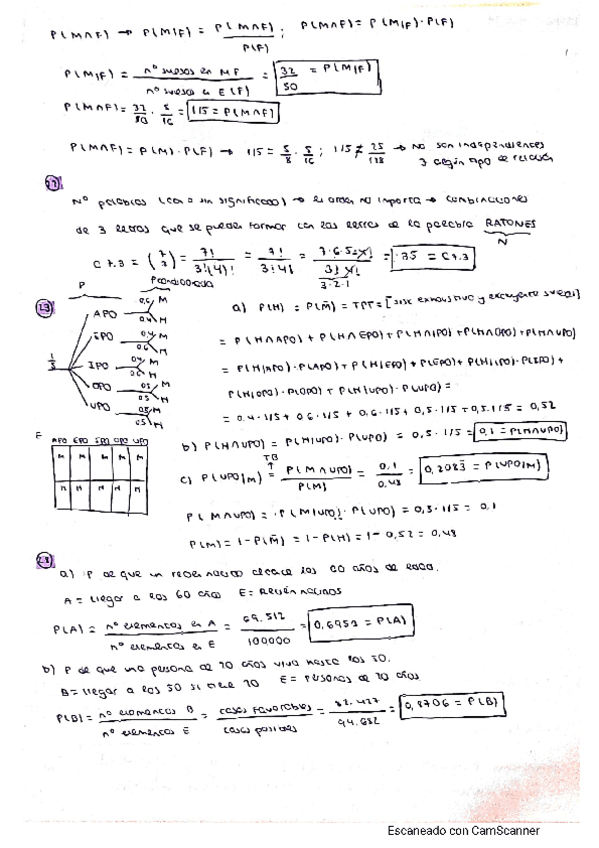 P(M∩F) → P(M|F) = P(M∩F) / P(F) ; P(M∩F) = P(M|F)·P(F)
P(M|F) = nº sucesos en MF / nº sucesos en E(F) = 32/50 = P(M|F)
P(M∩F) = 32/50 · 5/16 = 1/5 = P(M∩F)
P(M∩F) = P(M)·P(F) → 1/5 = 5/8 · 5/16 ; 1/5 ≠ 25/128 → No son independientes
según tipo de
Nº palabras (con o sin significado) → el orden no importa → combinaciones
de 3 letras que se pueden formar con las letras de la palabra RATONES
N
C 7.3 = (7 3) = 7!/3!(4)! = 7!/3!4! = 7·6·5·4!/3!4! = 35 = C 7.3
3·2·1
P Pcondicionada
APO 0.6 M 0.4 H
EPO 0.4 M 0.6 H
1/5 IPO 0.4 M 0.6 H
OPO 0.5 M 0.5 H
UPO 0.5 M 0.5 H
a) P(H) = P(M̄) = TPT = [sist exhaustivo y excluyente
= P(H∩APO) + P(H∩EPO) + P(H∩IPO) + P(H∩OPO) + P(H∩UPO)
= P(H|APO)·P(APO) + P(H|EPO)·P(EPO) + P(H|IPO)·P(IPO) +
P(H|OPO)·P(OPO) + P(H|UPO)·P(UPO) =
= 0.4·1/5 + 0.6·1/5 + 0.6·1/5 + 0,5·1/5 + 0,5·1/5 = 0,52
E APO EPO IPO OPO UPO
M M M M M
H H H H H
b) P(H∩UPO) = P(H|UPO)·P(UPO) = 0,5·1/5 = 0,1 = P(H∩UPO)
TB
c) P(UPO|M) = P(M∩UPO) / P(M) = 0,1/0,48 = 0,2083 = P(UPO|M)
P(M∩UPO) = P(M|UPO)·P(UPO) = 0,5·1/5 = 0,1
P(M) = 1-P(M̄) = 1-P(H) = 1-0,52 = 0,48
a) P de que un recien nacido alcance los 60 años de edad.
A = llegar a los 60 años E = Recién nacidos
P(A) = nº elementos en A / nº elementos en E = 69.512 / 100000 = 0,6951 = P(A)
b) P de que una persona de 20 años viva hasta los 50.
B = llegar a los 50 si tiene 20 E = Personas de 20 años
P(B) = nº elementos B / nº elementos E = casos favorables / casos posibles = 82.427 / 94.682 = 0,8706 = P(B)
Escaneado con CamScanner